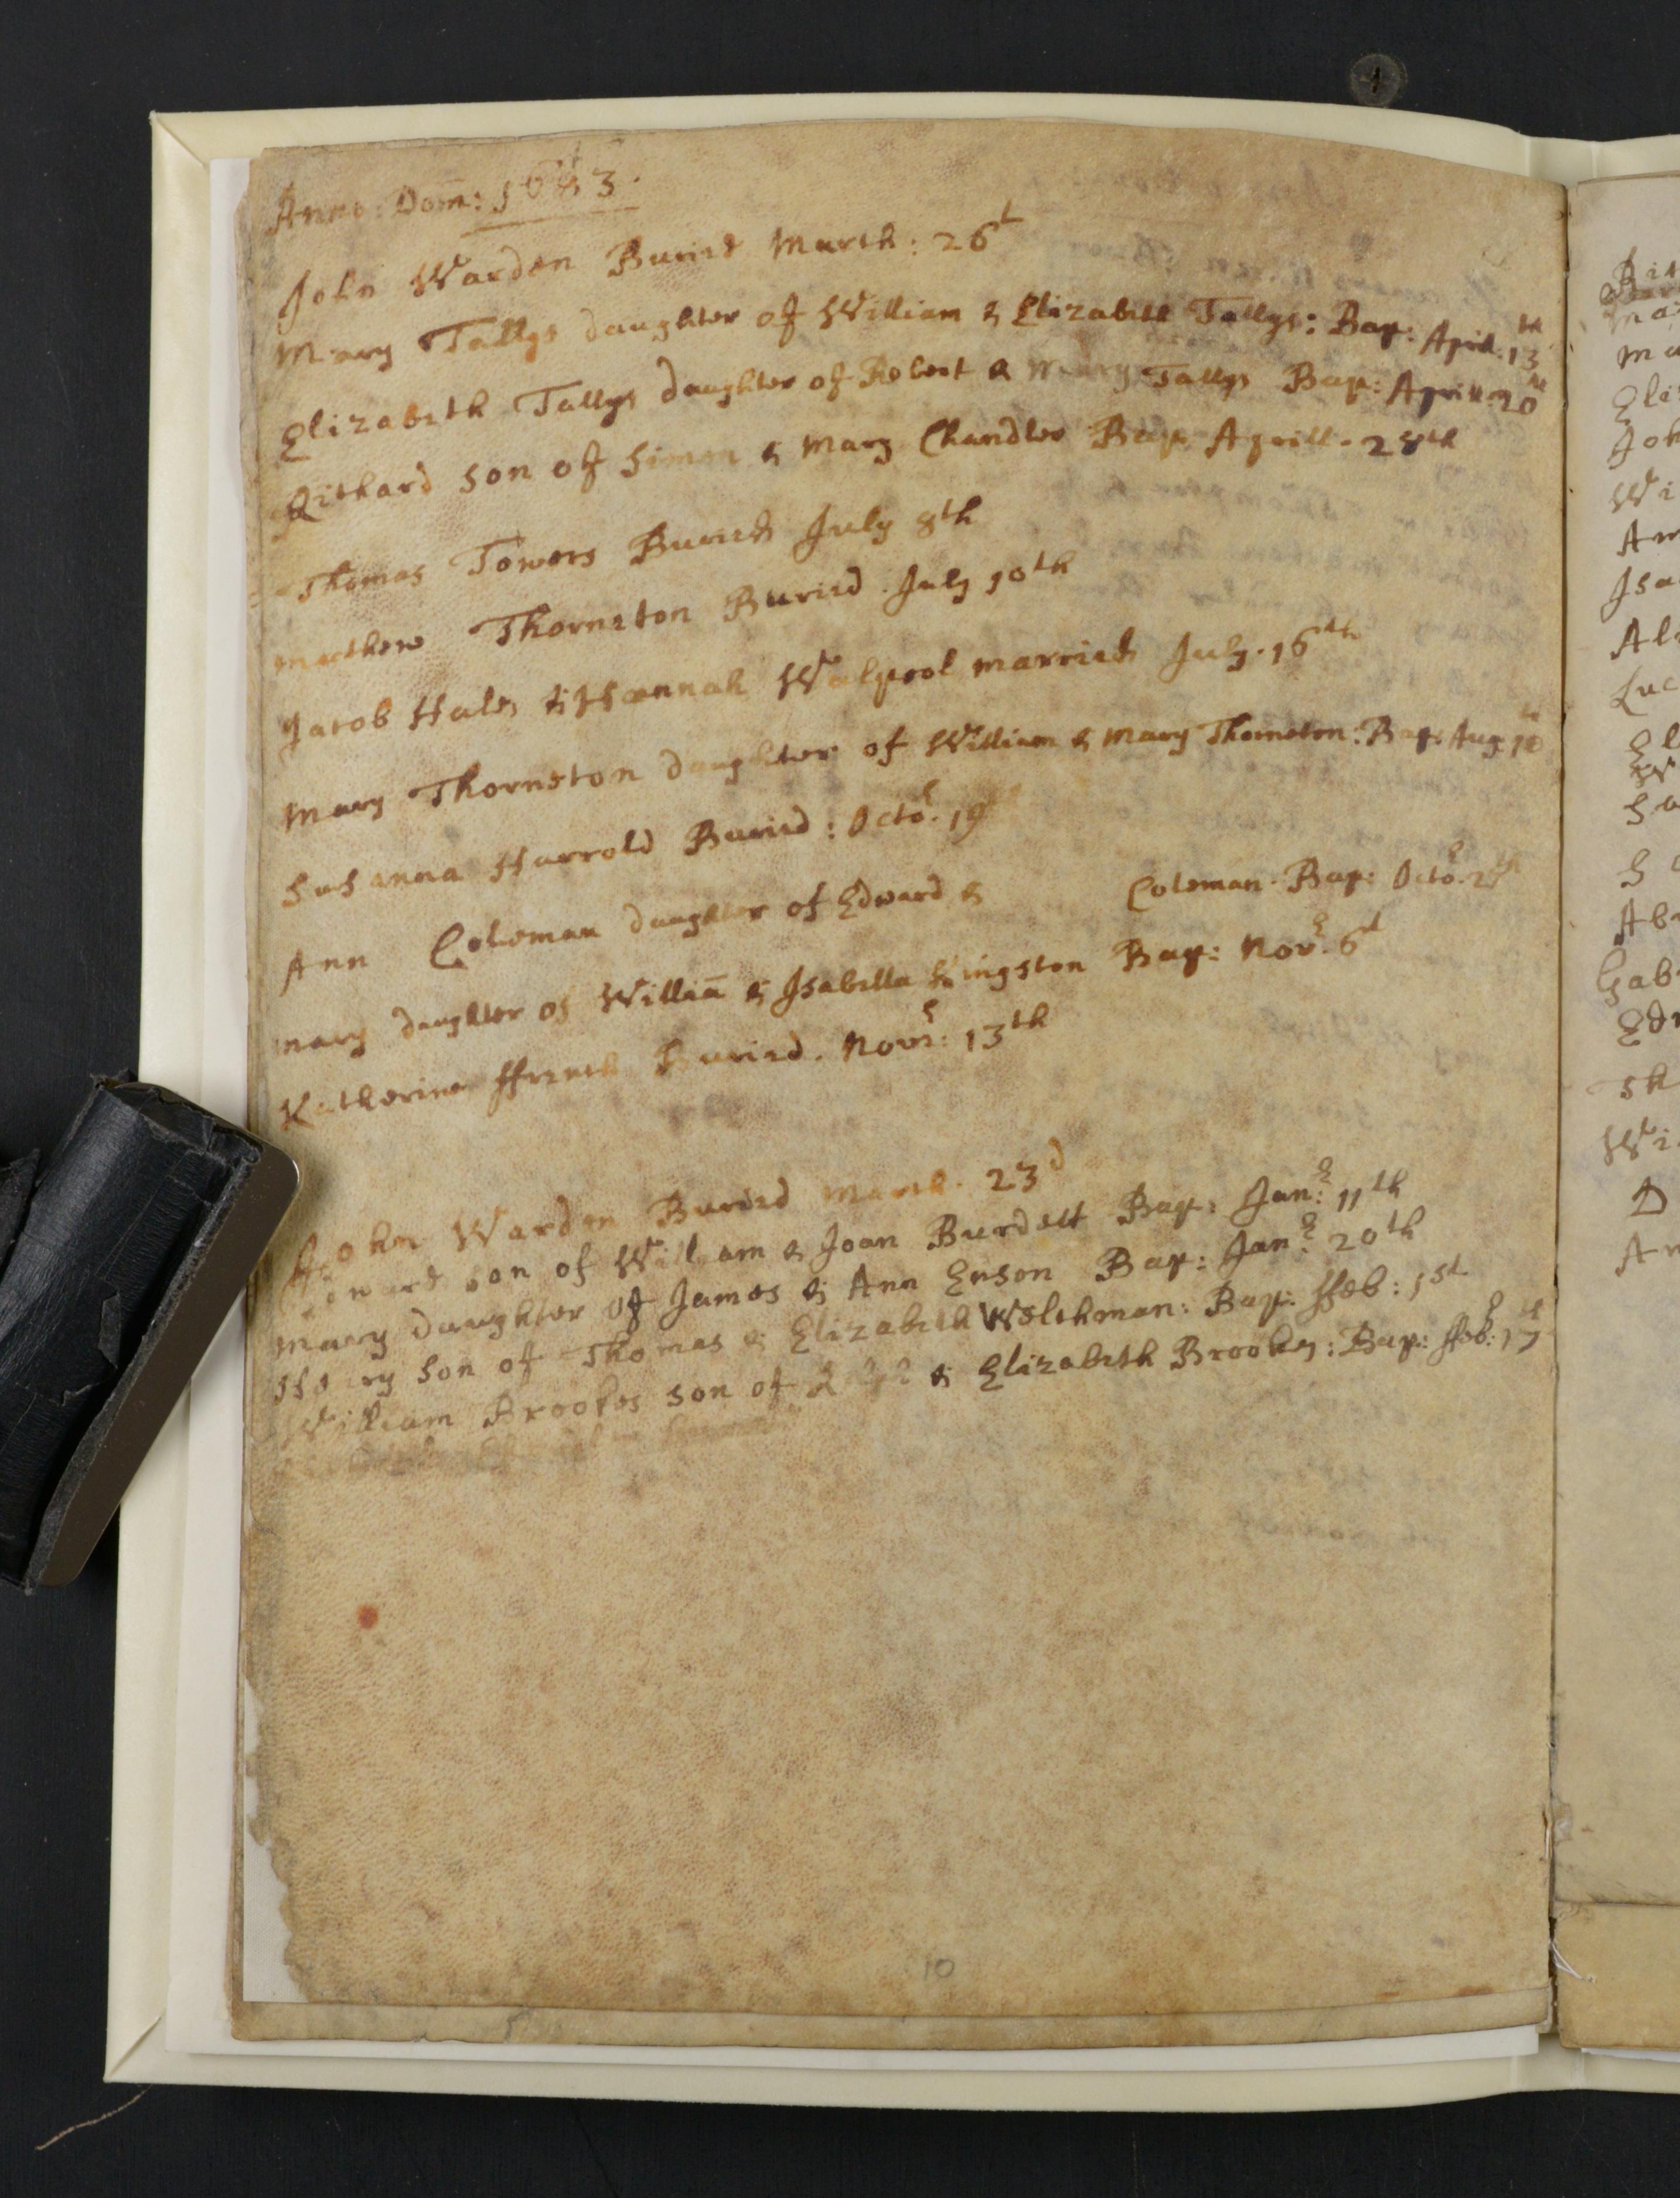 Anno: Dom̄: 1683.
John Warden Buried March: 26t
Mary Tallys daughter of William & Elizabeth Tallys: Bap: April: 13th
Elizabeth Tallys daughter of Robert & Mary Tallys Bap: Aprill 20th
Richard son of Simon & Mary Chandler Bap: Aprill. 28th
Thomas Towers Buried July 8th
Mathew Thornston Buried. July 10th
Jacob Hales & Hannah Walpool married July. 16th
Mary Thornston daughter of William & Mary Thornston: Bap: Aug 10th
Susanna Harrold Buried: Octo.r 19
Ann Coleman daughter of Edward & Coleman. Bap: Octo.r
mary daughter of Williā & Isabella Kingston Bap: Nov.r 6t
Katherine ffrench Buried. Nov.r: 13th
John Warden Buried March. 23d
Edward son of William & Joan Burdett Bap: Jan.r: 11th
Mary daughter of James & Ann Enson Bap: Jan.r: 20th
Henry son of Thomas & Elizabeth Welchman: Bap: ffeb: 1st
William Brookes son of & Elizabeth Brookes: Bap: ffeb.r: 17th
10
Ma
Eli
Joh
Wi
An
Isa
Al
Luc
El
Su
S
Ab
Gab
Ed
Sh
Wi
D
An